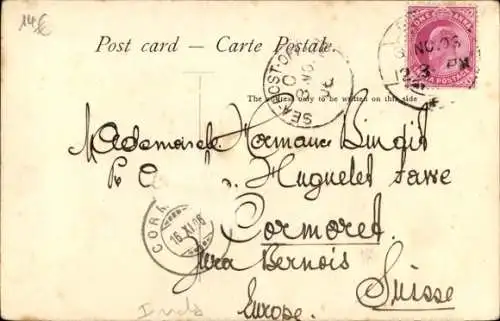 14€
Post card — Carte Postale.
ONE ANNA
INDIA POSTAGE
NO. 06
SEA POST-OFFICE
The address only to be written on this side
Mademoiselle Hermance Bingit
Huguelet favre
CORM
16 XI 06
Cormoret
Jura Bernois
Suisse
Europe.
Inde